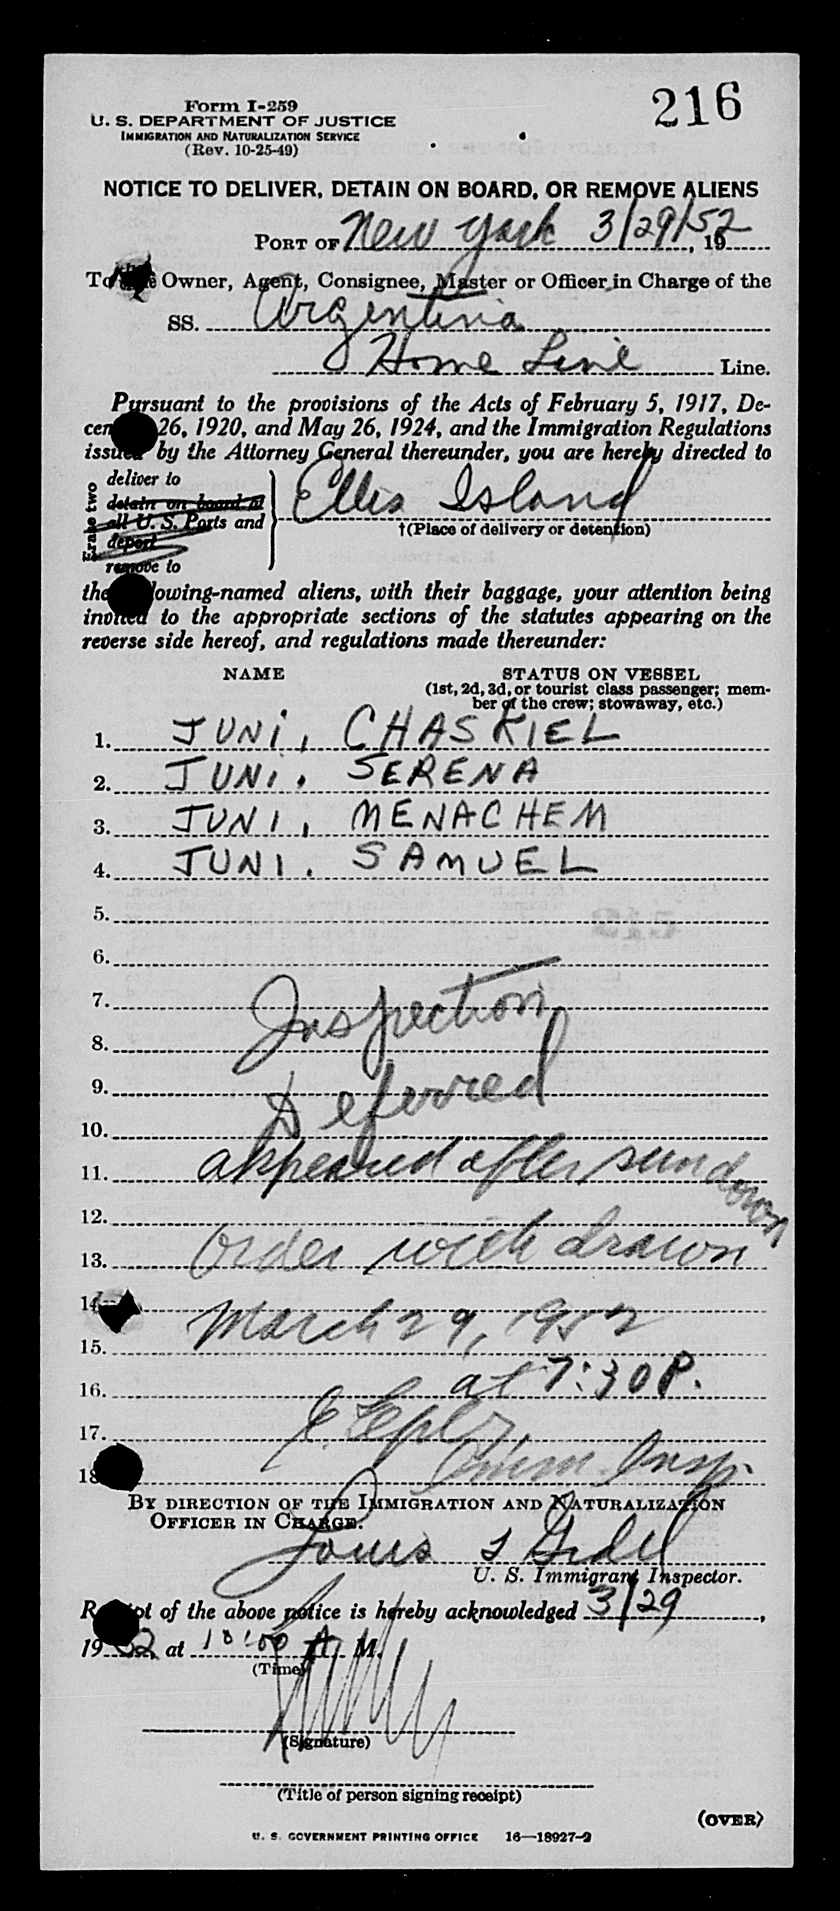 216
Form I-259
U. S. DEPARTMENT OF JUSTICE
IMMIGRATION AND NATURALIZATION SERVICE
(Rev. 10-25-49)
NOTICE TO DELIVER, DETAIN ON BOARD, OR REMOVE ALIENS
PORT OF New York 3/29/52, 19
To the Owner, Agent, Consignee, Master or Officer in Charge of the
SS. Argentina
Home Line Line.
Pursuant to the provisions of the Acts of February 5, 1917, De-
cem 26, 1920, and May 26, 1924, and the Immigration Regulations
issued by the Attorney General thereunder, you are hereby directed to
Erase two
deliver to
detain on board at
all U. S. Ports and
deport
remove to
Ellis Island
†(Place of delivery or detention)
the lowing-named aliens, with their baggage, your attention being
invited to the appropriate sections of the statutes appearing on the
reverse side hereof, and regulations made thereunder:
NAME STATUS ON VESSEL
(1st, 2d, 3d, or tourist class passenger; mem-
ber of the crew; stowaway, etc.)
1. JUNI, CHASKIEL
2. JUNI, SERENA
3. JUNI, MENACHEM
4. JUNI, SAMUEL
5.
6.
7. Inspection
8.
9. Deferred
10.
11. appeared after sundown
12.
13. Order with drawn
14
15. March 29, 1952
16. at 7:30 P.
17.
18 Imm. Insp.
BY DIRECTION OF THE IMMIGRATION AND NATURALIZATION
OFFICER IN CHARGE:
Louis
U. S. Immigrant Inspector.
Receipt of the above notice is hereby acknowledged 3/29,
1952 at 10:00 A. M.
(Time)
(Signature)
(Title of person signing receipt)
(OVER)
U. S. GOVERNMENT PRINTING OFFICE 16—18927-2